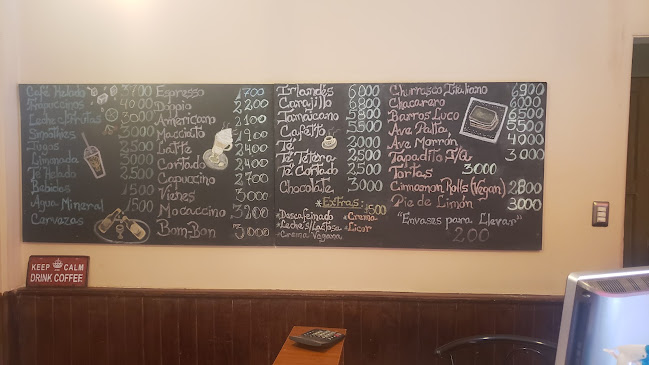 Café Helado 3700
Frapuccinos 4000
Leche c/Frutas 3000
Smothies 3000
Jugos 2500
Limonada 3000
Te Helado 2500
Bebidas 1500
Agua Mineral 1500
Cervezas
Espresso 1700
Doppio 2200
Americano 2100
Macciato 1900
Latte 2400
Cortado 2400
Capuccino 2700
Vienes 3000
Mocaccino 3200
Bom-Ban 3000
Irlandés 6000
Carajillo 6800
Jamaicano 6800
Cafetto
Té
Té Tetera
Té Cortado
Chocolate 3000
*Extras: 1500
*Descafeinado *Crema
*Leche s/Lactosa *Licor
*Crema Vegana
Churrasco Italiano 6900
Chacarero
Barros Luco
Ave Palta
Ave Morrón 4000
Tapadito J/Q 3000
Tartas 3000
Cinnamon Rolls (Vegan) 2800
Pie de Limón 3000
"Envases para Llevar"
200
KEEP CALM
DRINK COFFEE